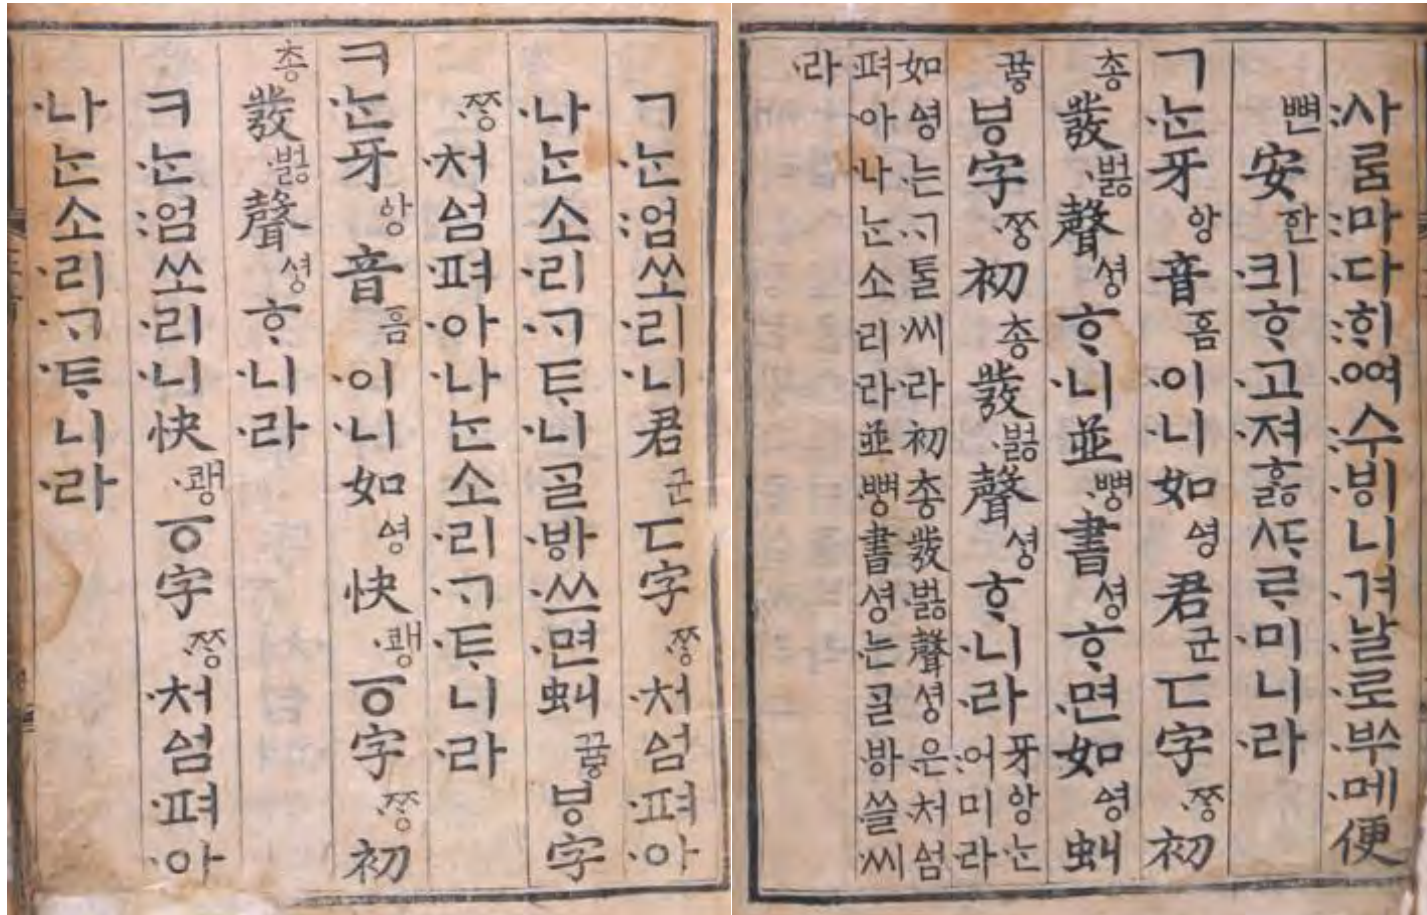 :사ᄅᆞᆷ:마·다:ᄒᆡ·ᅇᅧ:수·ᄫᅵ니·겨·날·로·ᄡᅮ·메便
뼌安한·킈ᄒᆞ·고·져ᄒᆞᇙᄯᆞᄅᆞ·미니·라
ㄱ·ᄂᆞᆫ牙ᅌᅡᆼ音ᅙᅳᆷ·이·니如ᅀᅧᆼ君군ㄷ字·ᄍᆞᆼ初
총發·버ᇙ聲셩ᄒᆞ·니並·뼝書셩ᄒᆞ·면如ᅀᅧᆼ虯
뀨ᇢㅸ字·ᄍᆞᆼ初총發·버ᇙ聲셩ᄒᆞ·니·라
牙ᅌᅡᆼ·ᄂᆞᆫ
:어미·라
如ᅀᅧᆼ·는·ᄀᆞᄐᆞᆯ·씨·라初총發·버ᇙ聲셩·은·처ᅀᅥᆷ
·펴·아·나·ᄂᆞᆫ소·리·라並·뼝書셩·는ᄀᆞᆯ·ᄫᅡ·쓸·씨
·라
ㄱ·ᄂᆞᆫ:엄쏘·리·니君군ㄷ字·ᄍᆞᆼ·처ᅀᅥᆷ·펴·아
·나·ᄂᆞᆫ소·리·ᄀᆞᄐᆞ·니ᄀᆞᆯ·ᄫᅡ·쓰·면虯뀨ᇢㅸ字
·ᄍᆞᆼ·처ᅀᅥᆷ·펴·아·나·ᄂᆞᆫ소·리·ᄀᆞ·ᄐᆞ니·라
ㅋ·ᄂᆞᆫ牙ᅌᅡᆼ音ᅙᅳᆷ·이·니如ᅀᅧᆼ快·쾡ㆆ字·ᄍᆞᆼ初
총發·버ᇙ聲셩ᄒᆞ·니·라
ㅋ·ᄂᆞᆫ:엄쏘·리·니快·쾡ㆆ字·ᄍᆞᆼ·처ᅀᅥᆷ·펴·아
·나·ᄂᆞᆫ소·리·ᄀᆞ·ᄐᆞ니·라